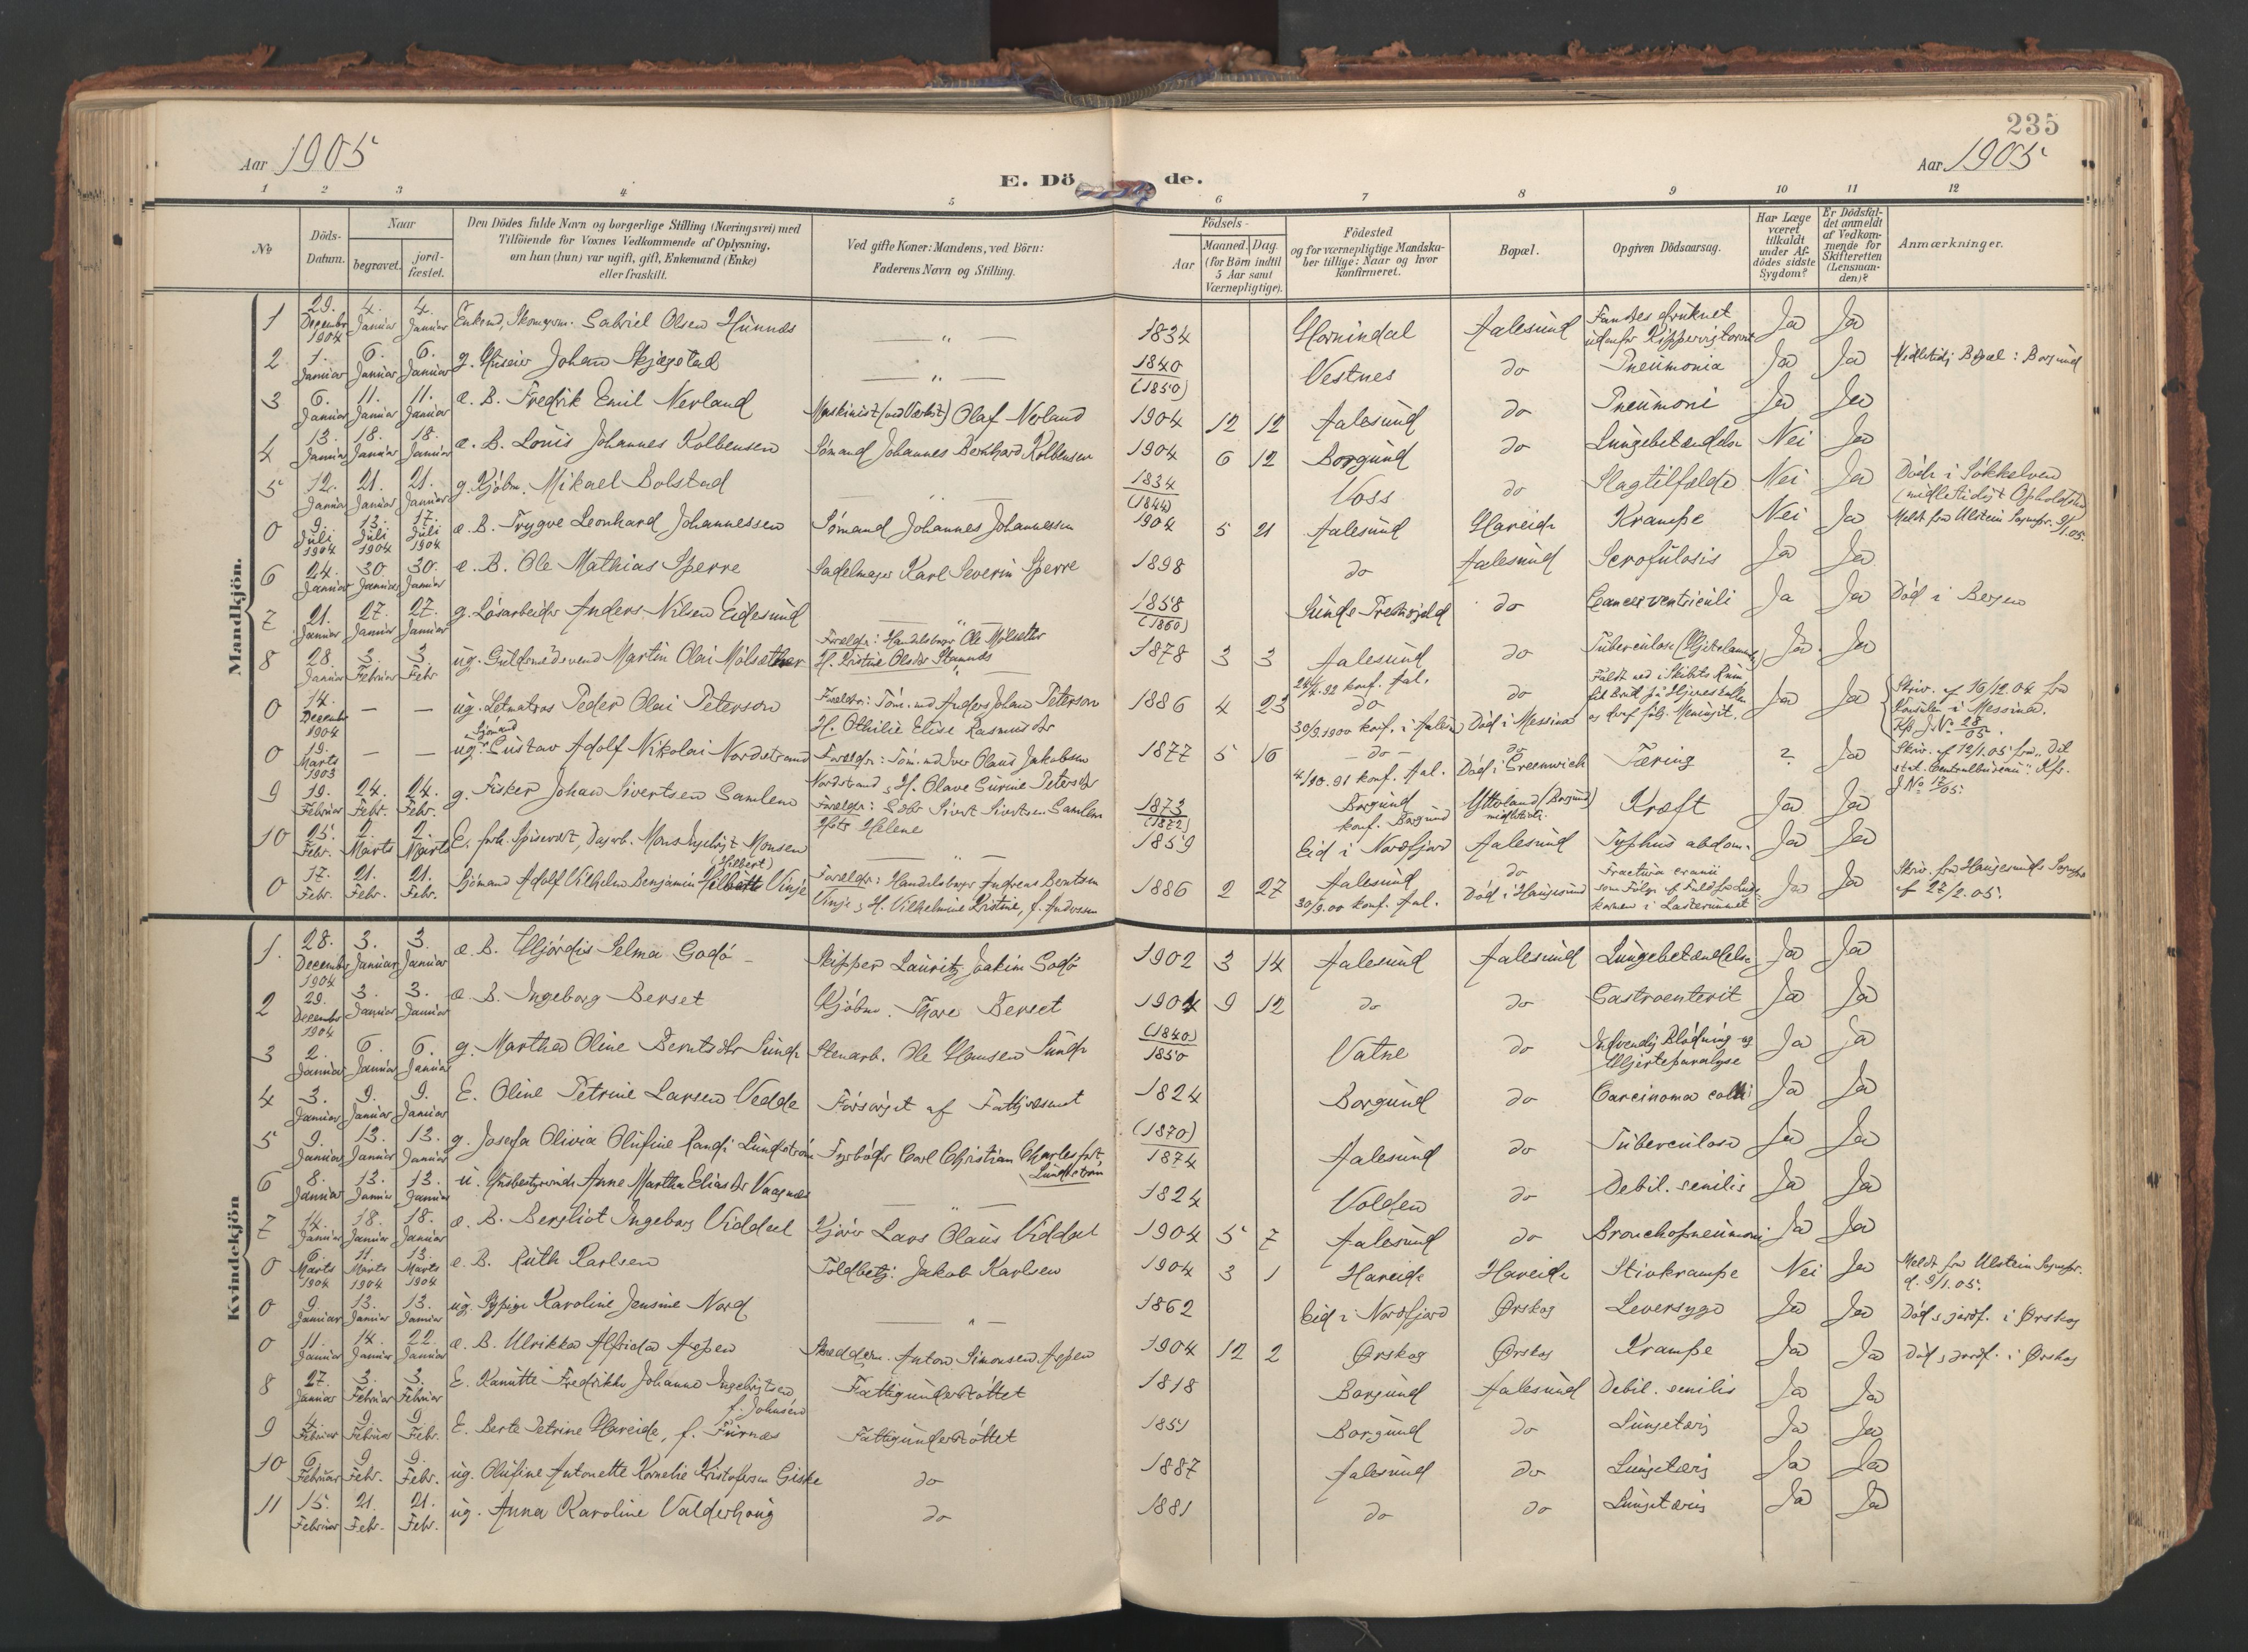 235
Aar 1905
Aar 1905
E. Dö de.
1 2 3 4 5 6 7 8 9 10 11 12
No
Döds-Datum.
Naar
begravet.
jord-fæstet.
Den Dödes fulde Navn og borgerlige Stilling (Næringsvei) med
Tilföiende for Voxnes Vedkommende af Oplysning,
om han (hun) var ugift, gift, Enkemand (Enke)
eller fraskilt.
Ved gifte Koner: Mandens, ved Börn:
Faderens Navn og Stilling.
Födsels-
Aar
Maaned. Dag.
(for Börn indtil
5 Aar samt
Værnepligtige).
Födested
og for værnepligtige Mandska-
ber tillige: Naar og hvor
konfirmeret.
Bopæl.
Opgiven Dödsaarsag.
Har Læge
været
tilkaldt
under Af-
dödes sidste
Sygdom?
Er Dödsfal-
det anmeldt
af Vedkom-
mende for
Skifteretten
(Lensman-
den)?
Anmærkninger.
Mandkjön.
1 29. Decembr 1904 4. Januar 4. Januar Enkemd, Skomagerm. Gabriel Olsen Hunnes — " — 1834 Hornindal Aalesund Fandtes druknet udenfor Ja Ja
2 1. Januar 6. Januar 6. Januar g. Johan Skjegstad — " — 1840 (1850) Vestnes do Pneumonia Ja Ja Midlertidig Bopæl: Borgund
3 6. Januar 11. Januar 11. Januar æ. B. Fredrik Emil Nerland Maskinist (ved Værkst) Olaf Nerland 1904 12 12 Aalesund do Pneumoni Ja Ja
4 13. Januar 18. Januar 18. Januar æ. B. Louis Johannes Kolbensen Sömand Johannes Bernhard Kolbensen 1904 6 12 Borgund do Lungebetændelse Nei Ja
5 12. Januar 21. Januar 21. Januar g. Kjöbm. Mikael Bolstad " — 1834 (1844) Voss do Slagtilfælde Nei Ja Döde i Sökkelven (midlertidigt Opholdsted)
0 9. Juli 1904 13. Juli 1904 17. Juli 1904 æ. B. Trygve Leonhard Johannessen Sömand Johannes Johannessen 1904 5 21 Aalesund Hareide Krampe Nei Ja Meldt fra Ulstein Sognepr. 9/1.05.
6 24. Januar 30. Januar 30. Januar æ. B. Ole Mathias Sperre Sadelmager Karl Severin Sperre 1898 do Aalesund Scrofulosis Ja Ja
7 21. Januar 27. Januar 27. Januar g. Lösarbeider Anders Nilsen Eidesund — " — 1858 (1860) do Cancer ventriculi Ja Ja Död i Bergen
8 28. Januar 3. Februar 3. Febr. ug. Guldsmedsvend Martin Olai Mölsæther Forældr: Handelsborger Ole Mölsæter H. Kristine Olsdtr 1878 3 3 Aalesund 24/4.92 konf. Aal. do Tuberculose Ja Ja
0 14. Decembr 1904 — — ug. Letmatros Peder Olai Peterson Forældr: Söm.md Anders Johan Peterson H. Othilie Elise Rasmusdtr 1886 4 23 do 30/9.1900 konf. i Aalesund do Död i Messina Faldt ned i Skibets Rum, og deraf fölg. Meningit. Ja Ja Skriv. af 16/12.04 fra Konsulen i Messina. J.No 28/05.
0 19. Marts 1903 — — ug. Sjömand Gustav Adolf Nikolai Nordstrand Forældr: Söm.md Iver Olaus Jakobsen Nordstrand, H. Olave Gurine Petersdtr 1877 5 16 — do — 4/10.91 konf. Aal. do Död i Greenwich Tæring ? Ja Skriv. af 12/1.05 fra "Det stat. Centralbureau". Kfr. J No 17/05.
9 19. Februar 24. Febr. 24. Febr. g. Fisker Johan Sivertsen Samlem Forældr: Sivert Sivertsen Samlem Helene 1873 (1872) Borgund konf. Borgund Ytterland (Borgund) midlertidi. Kræft Ja Ja
10 25. Febr. 2. Marts 2. Marts E. forh. Spisevært, Dagarb. Mons Ingebrigt Monsen — " — 1859 Eid i Nordfjord Aalesund Typhus abdom. Ja Ja
0 17. Febr. 21. Febr. 21. Febr. Sjömand Adolf Vilhelm Benjamin (Hilbert) Vinje Forældr: Handelsborger Andreas Berntsen Vinje, H. Vilhelmine Kristine, f. Andersen 1886 2 27 Aalesund 30/9.00 konf. Aal. do Död i Haugesund Fractura cranii som Fölge af Fald fra Lugekarmen i Lasterummet Ja Ja Skriv. fra Haugesunds Sognepr. af 27/2.05.
Kvindekjön
1. 28. Decembr 1904 3. Januar 3. Januar æ. B. Hjördis Selma Godö Skipper Lauritz Joakim Godö 1902 3 14 Aalesund Aalesund Lungebetændelse Ja Ja
2 29. Decembr 1904 3. Januar 3. Januar æ. B. Ingeborg Berset Kjöbm. Thore Berset 1904 9 12 do do Gastroenterit Ja Ja
3 2. Januar 6. Januar 6. Januar g. Martha Oline Berntsdtr Sunde Stenarb. Ole Hansen Sunde (1840) 1850 Vatne do Indvendig Blödning og Hjerteparalyse Ja Ja
4 3. Januar 9. Januar 9. Januar E. Oline Petrine Larsen Vedde Forsörget af Fattigvæsenet 1824 Borgund do Carcinoma colli Ja Ja
5 9. Januar 13. Januar 13. Januar g. Josefa Olivia Olufine Randi Lundström Fyrböder Carl Christian Charles Lundström (1870) 1874 Aalesund do Tuberculose Ja Ja
6 8. Januar 13. Januar 13. Januar u. Husbestyrerinde Anne Martha Eliasdtr Vaagnæs — " — 1824 Volden do Debil. senilis Ja Ja
7 14. Januar 18. Januar 18. Januar æ. B. Bergliot Ingeborg Viddal Lars Olaus Viddal 1904 5 7 Aalesund do Bronchopneumoni Ja Ja
0 6. Marts 1904 11. Marts 1904 13. Marts 1904 æ. B. Ruth Karlsen Toldbetj. Jakob Karlsen 1904 3 1 Hareide Hareide Stivkrampe Nei Ja Meldt fra Ulstein Sognepr. d. 9/1.05.
0 9. Januar 13. Januar 13. Januar ug. Sypige Karoline Jensine Nord — " — 1862 Eid i Nordfjord Ørskog Leversyge Ja Ja Död, jordf. i Ørskog
0 11. Januar 14. Januar 22. Januar æ. B. Ulrikka Alfrida Aspen Skredderm. Anton Simonsen Aspen 1904 12 2 Ørskog Ørskog Krampe Ja Ja Död, jordf. i Ørskog
8 27. Januar 3. Februar 3. Februar E. Kanutte Fredrikke Johanne Ingebrigtsen, f. Johnsen Fattigunderstöttet 1818 Borgund Aalesund Debil. senilis Ja Ja
9 4. Februar 9. Februar 9. Febr. E. Berte Petrine Hareide, f. Furnæs Fattigunderstöttet 1851 Borgund do Lungetæring Ja Ja
10 6. Februar 9. Febr. 9. Febr. ug. Olufine Antonette Kornelie Kristofersen Giske do 1887 Aalesund do Lungetæring Ja Ja
11 15. Februar 21. Febr. 21. Febr. ug. Anna Karoline Valderhaug do 1881 do do Lungetæring Ja Ja